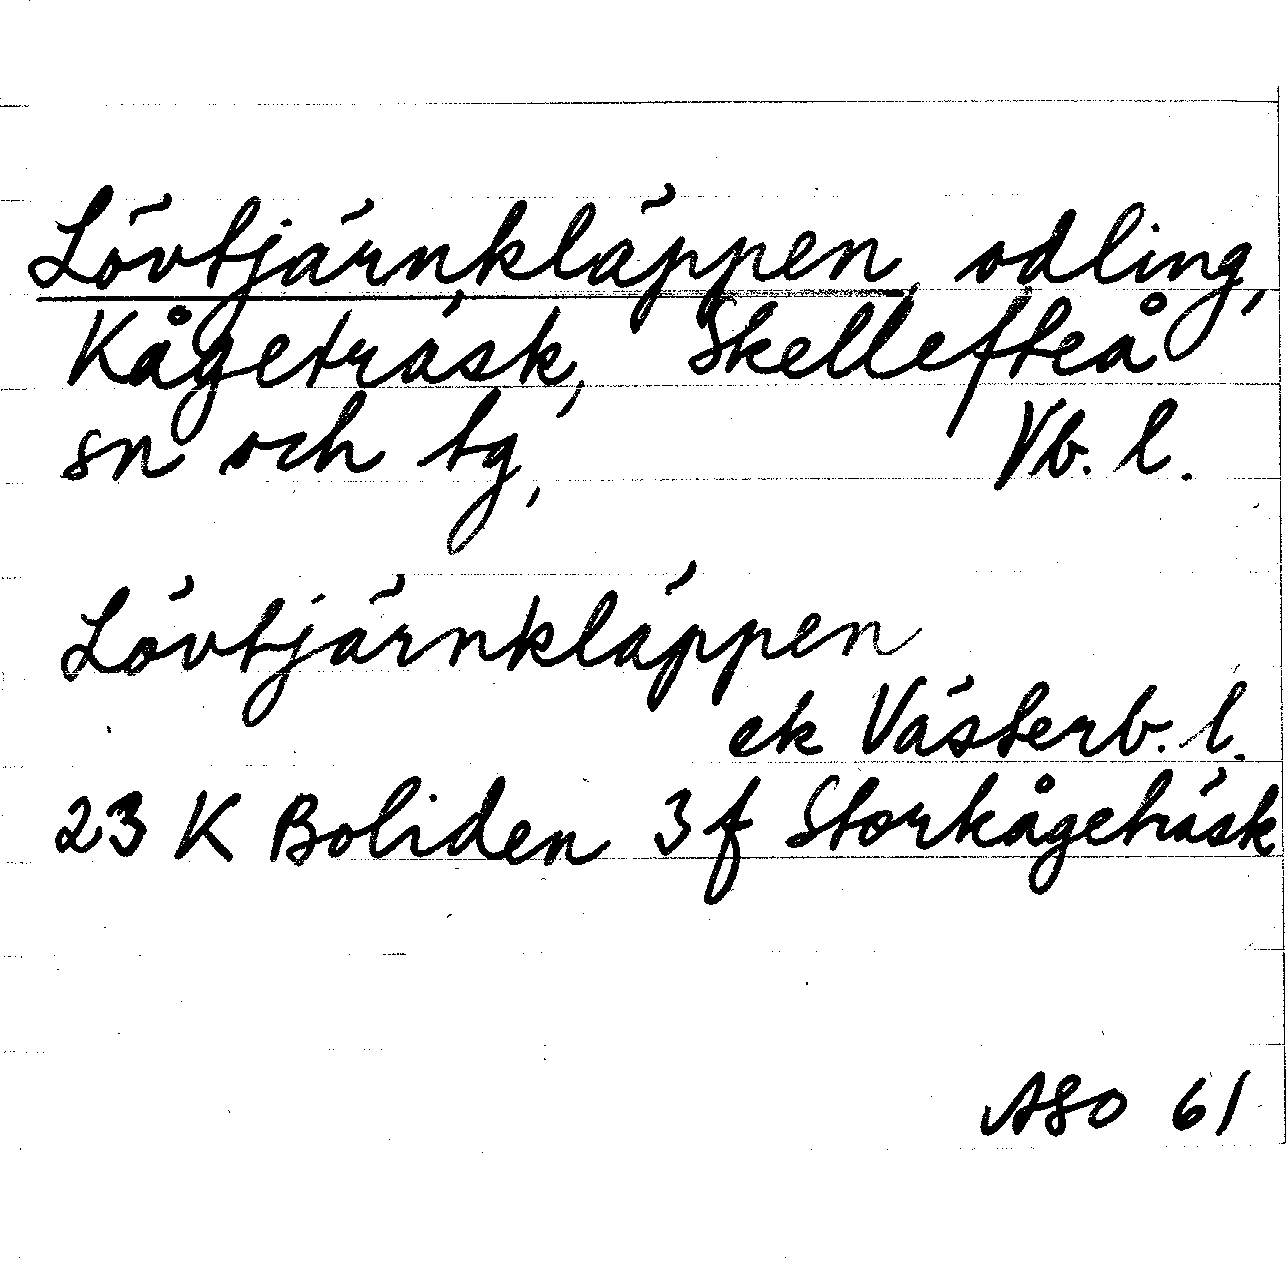 Lövtjärnkläppen, odling,
Kågeträsk, Skellefteå
sn och tg, Vb. l.
Lövtjärnkläppen
ek Västerb. l.
23 K Boliden 3 f Storkågeträsk
ASO 61